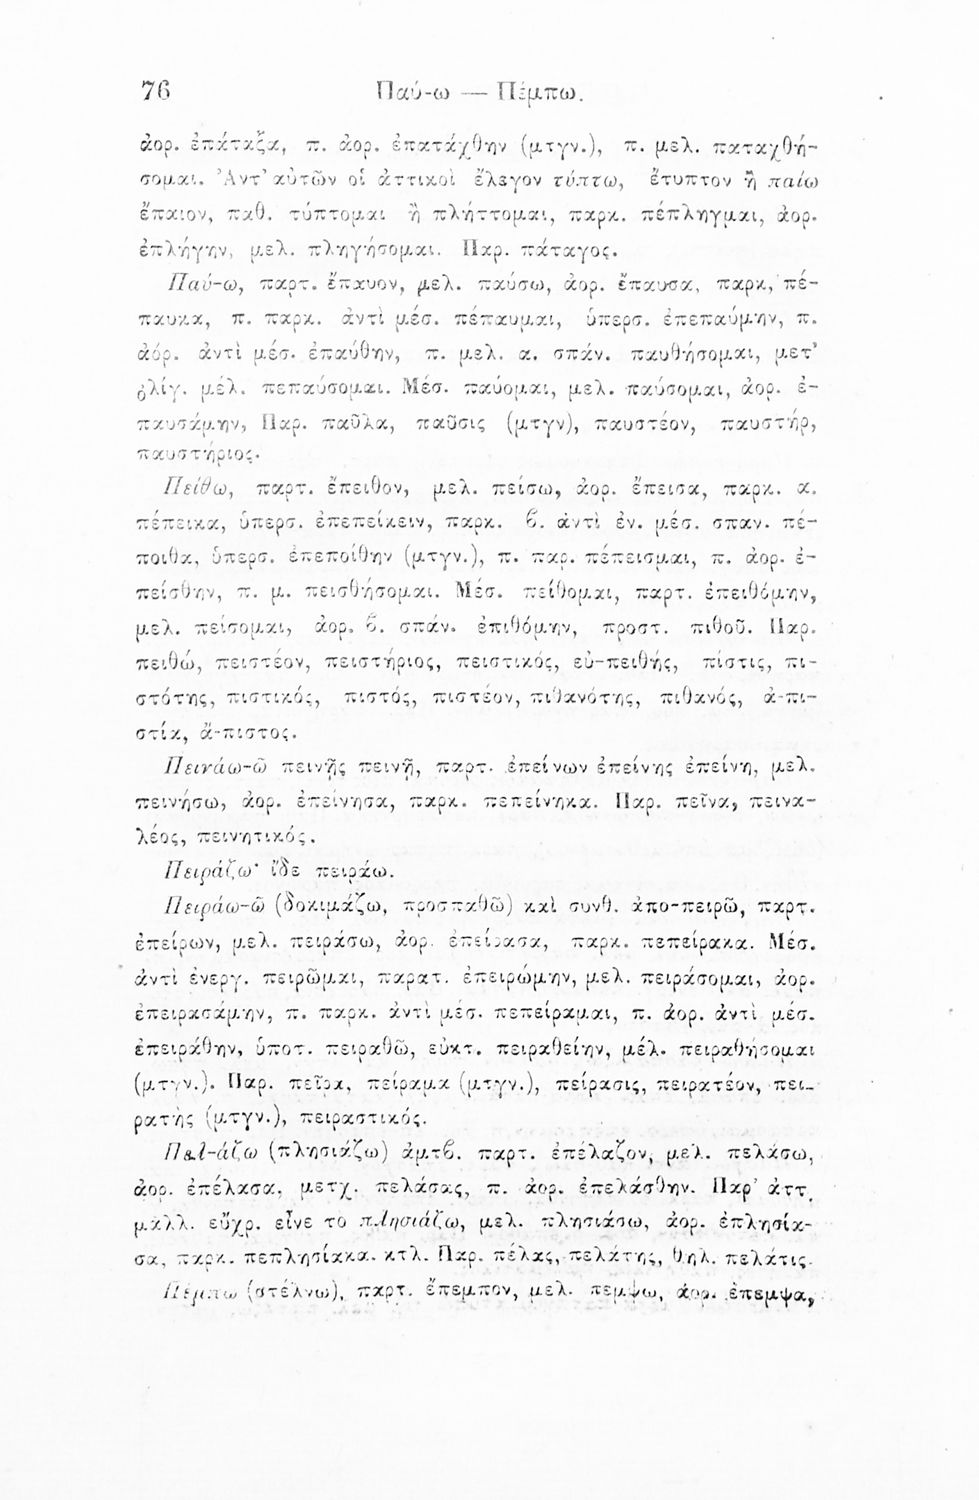 76 Παύ-ω — Πέμπω.
ἀορ. ἐπάταξα, π. ἀορ. ἐπατάχθην (μτγν.), π. μελ. παταχθή-
σομαι. Ἀντ' αὐτῶν οἱ ἀττικοὶ ἔλεγον τύπτω, ἔτυπτον ἢ παίω
ἔπαιον, παθ. τύπτομαι ἢ πλήττομαι, παρκ. πέπληγμαι, ἀορ.
ἐπλήγην, μελ. πληγήσομαι. Παρ. πάταγος.
Παύ-ω, παρτ. ἔπαυον, μελ. παύσω, ἀορ. ἔπαυσα, παρκ, πέ-
παυκα, π. παρκ. ἀντὶ μέσ. πέπαυμαι, ὑπερσ. ἐπεπαύμην, π.
ἀόρ. ἀντὶ μέσ. ἐπαύθην, π. μελ. α. σπάν. παυθήσομαι, μετ'
ὀλίγ. μέλ. πεπαύσομαι. Μέσ. παύομαι, μελ. παύσομαι, ἀορ. ἐ-
παυσάμην, Παρ. παῦλα, παῦσις (μτγν), παυστέον, παυστήρ,
παυστήριος.
Πείθω, παρτ. ἔπειθον, μελ. πείσω, ἀορ. ἔπεισα, παρκ. α.
πέπεικα, ὑπερσ. ἐπεπείκειν, παρκ. ϐ. ἀντὶ ἐν. μέσ. σπαν. πέ-
ποιθα, ὑπερσ. ἐπεποίθην (μτγν.), π. παρ. πέπεισμαι, π. ἀορ. ἐ-
πείσθην, π. μ. πεισθήσομαι. Μέσ. πείθομαι, παρτ. ἐπειθόμην,
μελ. πείσομαι, ἀορ. ϐ. σπάν. ἐπιθόμην, προστ. πιθοῦ. Παρ.
πειθώ, πειστέον, πειστήριος, πειστικός, εὐ-πειθής, πίστις, πι-
στότης, πιστικός, πιστός, πιστέον, πιθανότης, πιθανός, ἀ-πι-
στία, ἄ-πιστος.
Πεινάω-ῶ πεινῇς πεινῇ, παρτ. ἐπείνων ἐπείνης ἐπείνη, μελ.
πεινήσω, ἀορ. ἐπείνησα, παρκ. πεπείνηκα. Παρ. πεῖνα, πεινα-
λέος, πεινητικός.
Πειράζω· ἴδε πειράω.
Πειράω-ῶ (δοκιμάζω, προσπαθῶ) καὶ συνθ. ἀπο-πειρῶ, παρτ.
ἐπείρων, μελ. πειράσω, ἀορ. ἐπείρασα, παρκ. πεπείρακα. Μέσ.
ἀντὶ ἐνεργ. πειρῶμαι, παρατ. ἐπειρώμην, μελ. πειράσομαι, ἀορ.
ἐπειρασάμην, π. παρκ. ἀντὶ μέσ. πεπείραμαι, π. ἀορ. ἀντὶ μέσ.
ἐπειράθην, ὑποτ. πειραθῶ, εὐκτ. πειραθείην, μέλ. πειραθήσομαι
(μτγν.). Παρ. πεῖρα, πείραμα (μτγν.), πείρασις, πειρατέον, πει-
ρατής (μτγν.), πειραστικός.
Πελ-άζω (πλησιάζω) ἀμτϐ. παρτ. ἐπέλαζον, μελ. πελάσω,
ἀορ. ἐπέλασα, μετχ. πελάσας, π. ἀορ. ἐπελάσθην. Παρ' ἀττ.
μᾶλλ. εὔχρ. εἶνε τὸ πλησιάζω, μελ. πλησιάσω, ἀορ. ἐπλησία-
σα, παρκ. πεπλησίακα. κτλ. Παρ. πέλας, πελάτης, θηλ. πελάτις.
Πέμπω (στέλνω), παρτ. ἔπεμπον, μελ. πεμψω, ἀορ. ἐπεμψα,